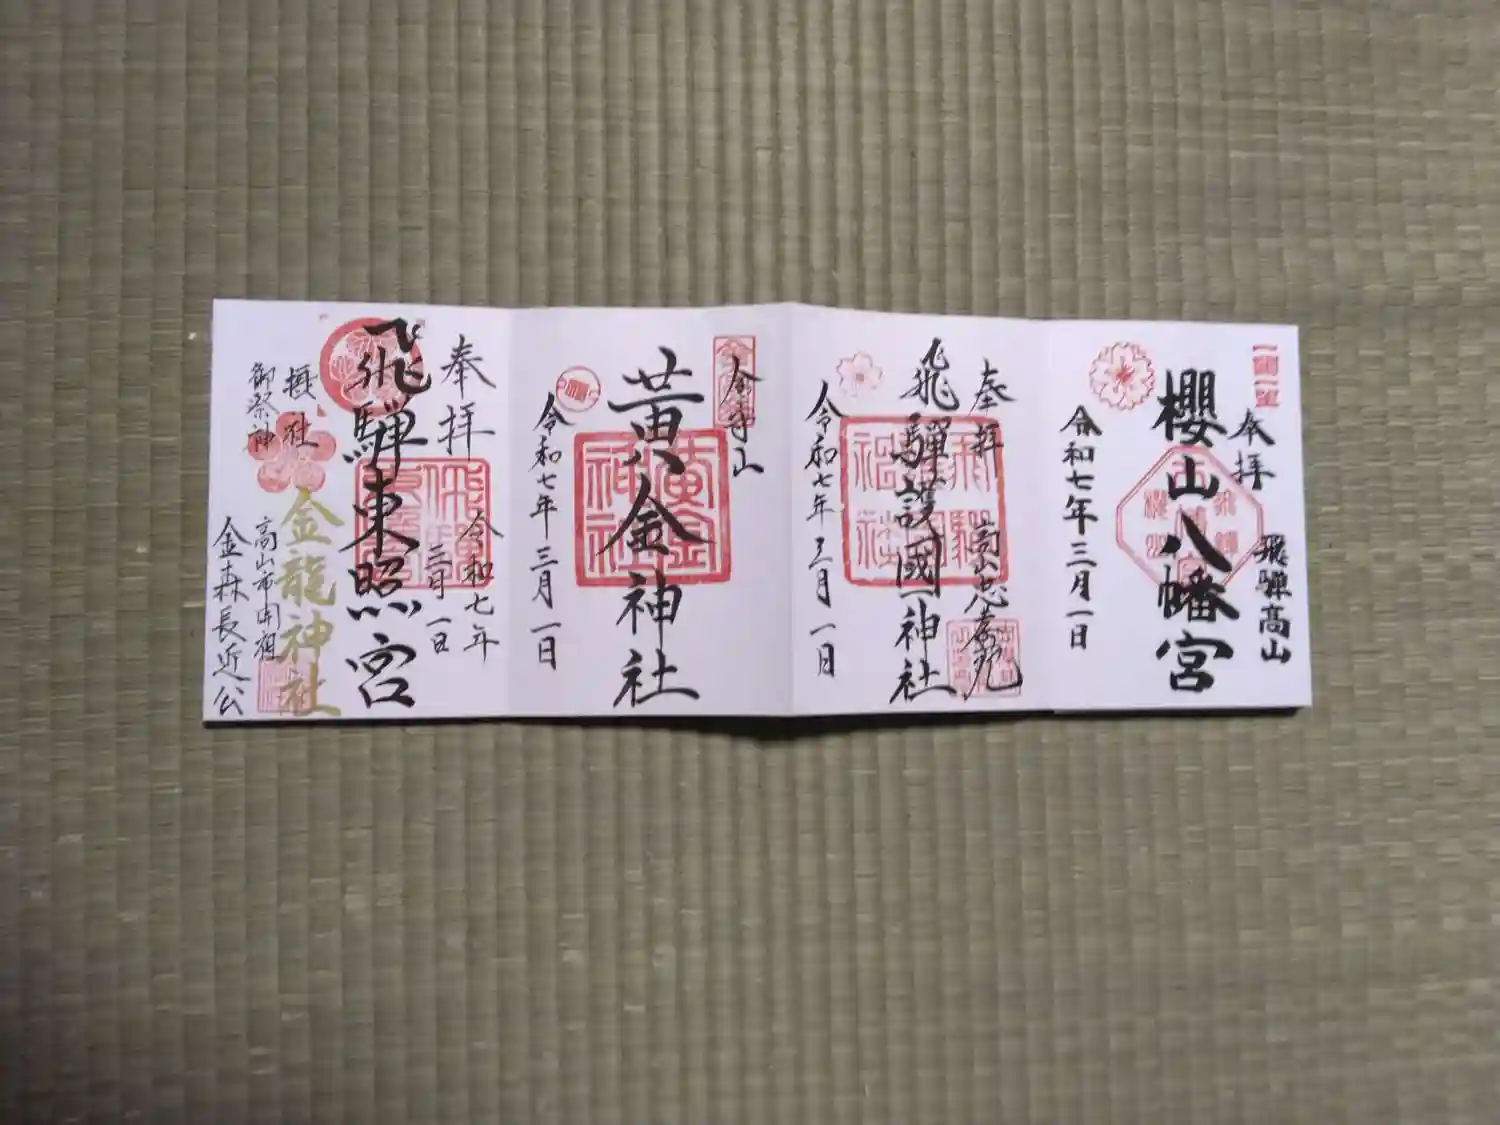 奉拝
飛騨高山
櫻山八幡宮
令和七年三月一日
奉拝
高山
飛騨護國神社
令和七年三月一日
金寺山
黄金神社
黄金神社
令和七年三月一日
奉拝
令和七年
三月一日
飛騨東照宮
摂社
金龍神社
御祭神
高山市開祖
金森長近公